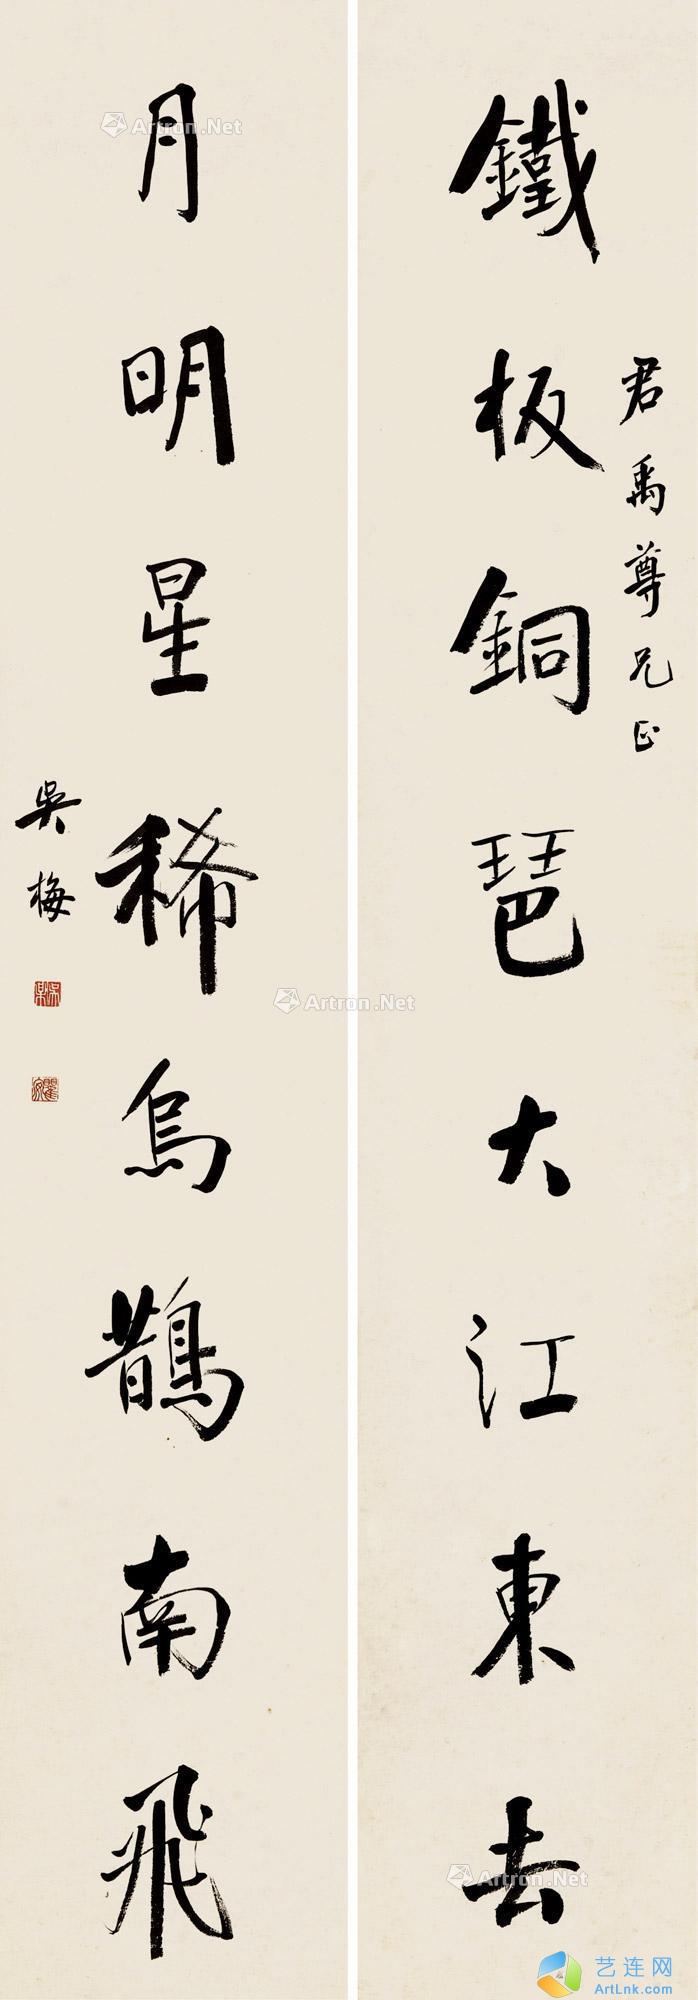 鐵板銅琶大江東去
君禹尊兄正
月明星稀烏鵲南飛
吳梅
吳梅
Artron.Net
Artron.Net
Artron.Net
艺连网
ArtLnk.com